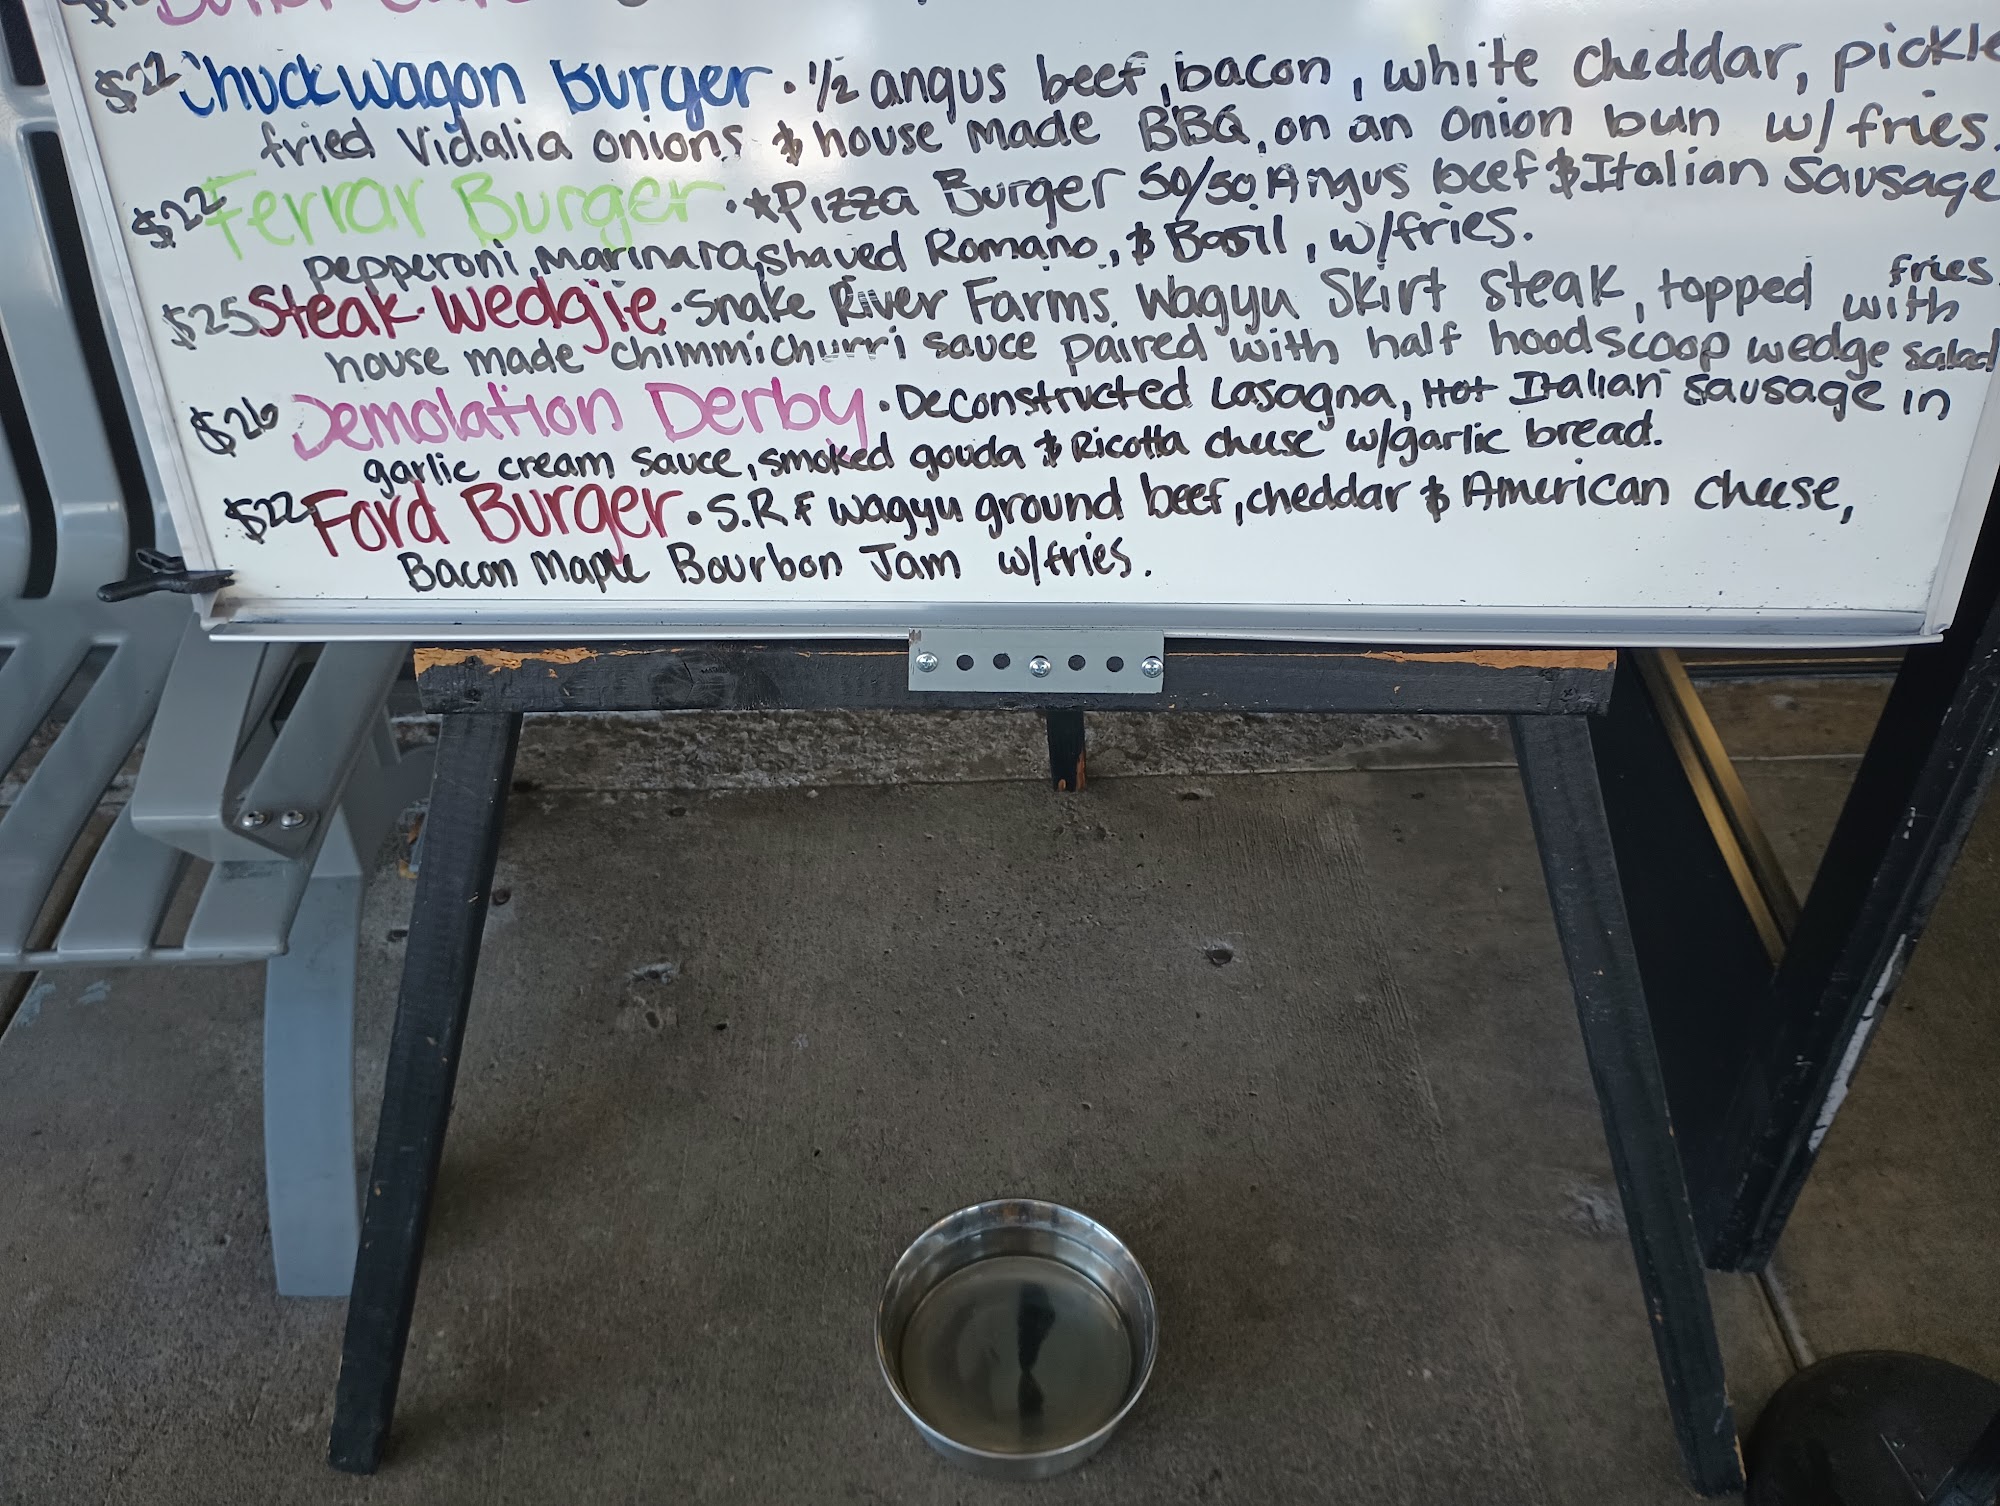 $22 Chuckwagon Burger · 1/2 angus beef, bacon, white cheddar, pickle
fried Vidalia onions & house made BBQ, on an onion bun w/fries.
$22 Ferrar Burger · *Pizza Burger 50/50 Angus beef & Italian Sausage
pepperoni, marinara, shaved Romano, & Basil, w/fries.
$25 Steak Wedgie · Snake River Farms Wagyu Skirt steak, topped with fries
house made chimmichurri sauce paired with half hoodscoop wedge salad
$26 Demolation Derby · Deconstructed Lasagna, Hot Italian sausage in
garlic cream sauce, smoked gouda & Ricotta cheese w/garlic bread.
$22 Ford Burger · S.R.F Wagyu ground beef, cheddar & American cheese,
Bacon Maple Bourbon Jam w/fries.